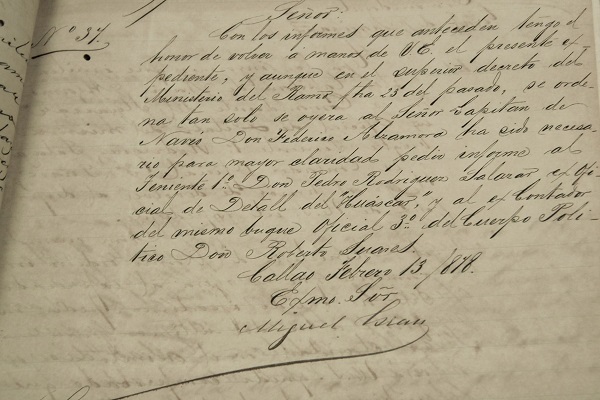 Señor.
Nº 37.
Con los informes que anteceden tengo el
honor de volver á manos de V.E. el presente ex-
pediente, y aunque en el superior decreto del
Ministerio del Ramo fha 23 del pasado, se orde-
na tan solo se oyera al Señor Capitan de
Navio Don Federico Alzamora ha sido necesa-
rio para mayor claridad pedir informe al
Teniente 1º Don Pedro Rodriguez Salazar ex Ofi-
cial de Detall del "Huáscar," y al ex Contador
del mismo buque Oficial 3º del Cuerpo Polí-
tico Don Roberto Suares.
Callao Febrero 13/878.
Exmo. Sõr
Miguel Grau